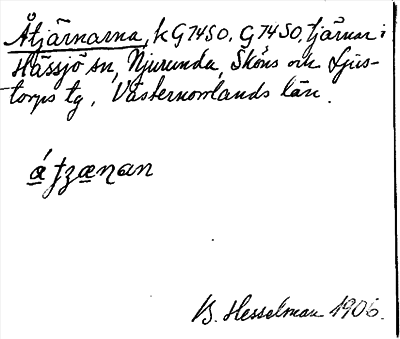 Åtjärnarna, k G 74 SO. G 74 SO, tjärnar i
Hässjö sn, Njurunda, Sköns och Ljus-
torps tg, Västernorrlands län.
B. Hesselman 1906.